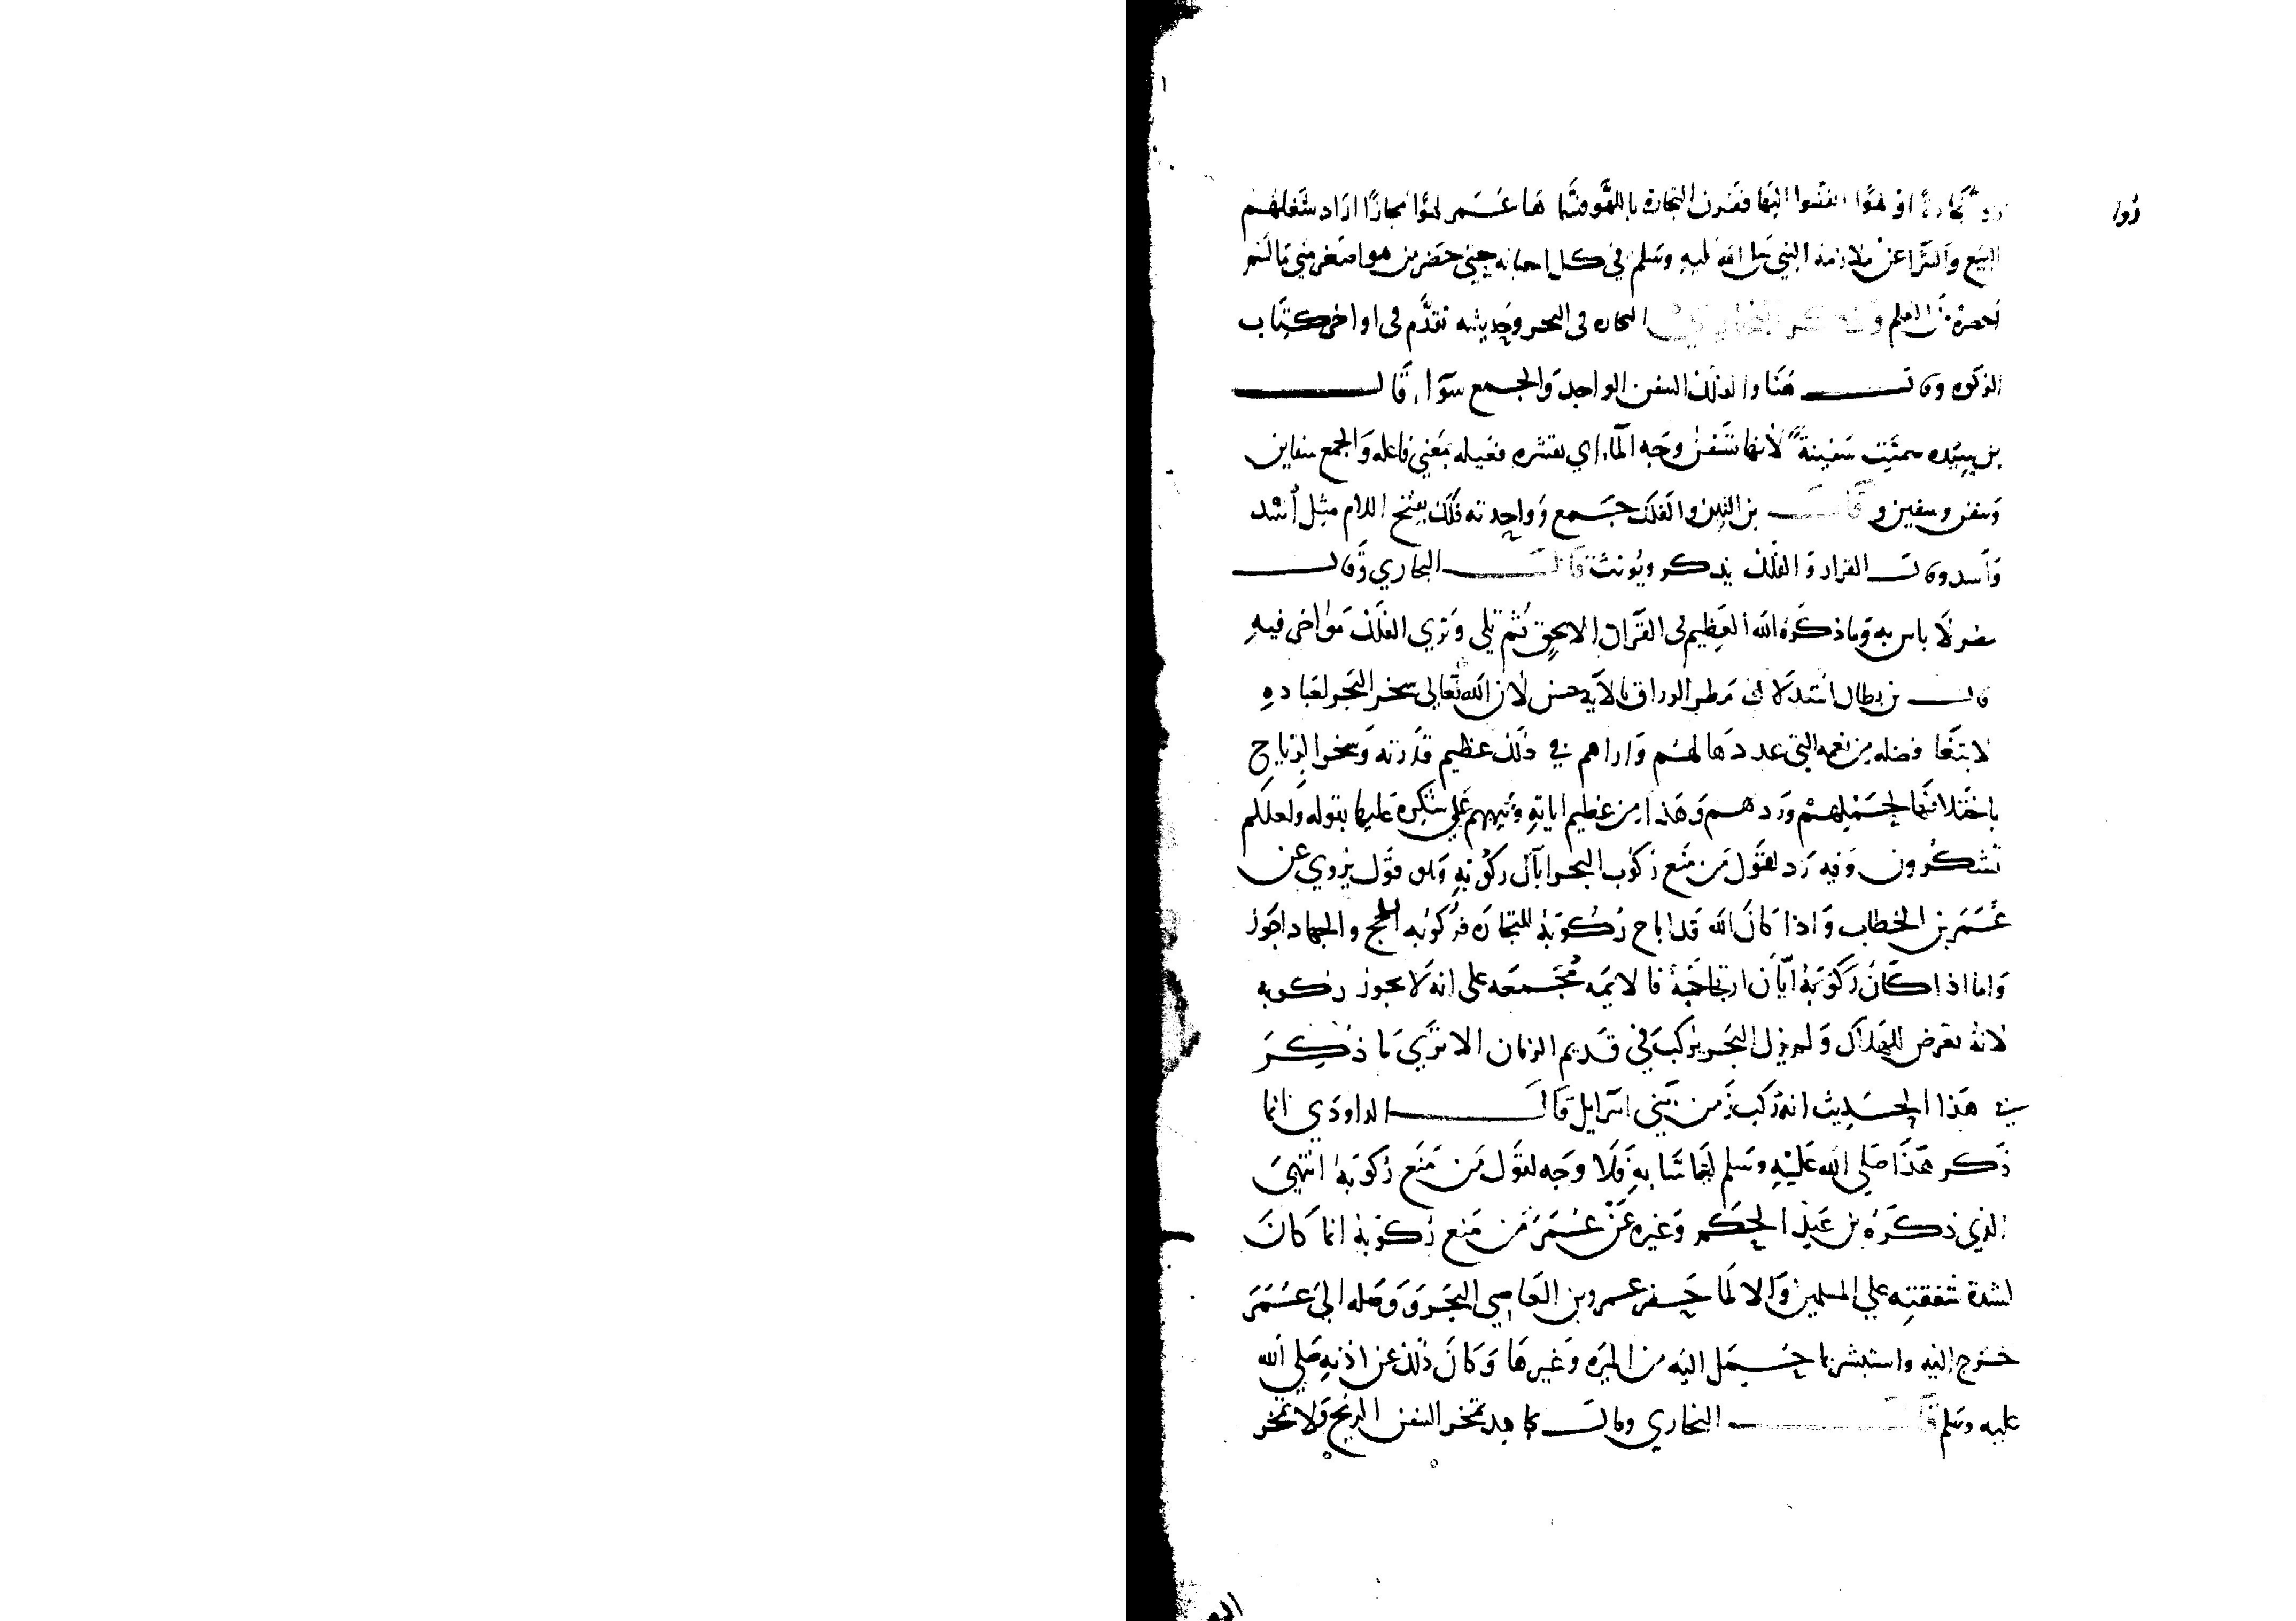 راوا تجارة او لهوا انفضوا اليها فقرن التجارة باللهو فسماها عمر لهوا مجازا اراد شغلهم
البيع والشرا عن ملازمة النبي صلى الله عليه وسلم في كل احيانه حتى حضر من هو اصغر مني ما لم
احضره من العلم التجاره في البحر وحديثه تقدم في اواخر كتاب
الزكوه وقال هنا والفلك السفن الواحد والجمع سوآ قال
بن سيده سميت سفينة لانها تسفن وجه المآء اي تقشره فعيله بمعنى فاعله والجمع سفاين
وسفن وسفين وقال بن التين والفلك جمع وواحدته فلك بفتح اللام مثل أسد
وأسد وقال الفراء والفلك يذكر ويونث قال البخاري وقال
مطر لا باس به وما ذكره الله العظيم في القرآن الا بحق ثم تلى وترى الفلك مواخر فيه
قال بن بطال استدلال مطر الوراق بالآية حسن لان الله تعالى سخر البحر لعباده
لابتغا فضله من نعمه التي عددها لهم واراهم في ذلك عظيم قدرته وسخر الرياح
باختلافها لحملهم وردهم وهذا من عظيم اياته ونبههم على شكره عليها بقوله ولعلكم
تشكرون وفيه رد لقول من منع ركوب البحر ابآن ركوبه وهو قول يروي عن
عمر بن الخطاب واذا كان الله قد اباح ركوبه للتجاره فركوبه للحج والجهاد اجوز
واما اذا كان ركوبه ابان ارتجاجه فالايمه مجمعه على انه لا يجوز ركوبه
لانه تعرض للهلاك ولم يزل البحر يركب في قديم الزمان الا ترى ما ذكر
في هذا الحديث انه ركب زمن بني اسرايل قال الداودي انما
ذكر هذا صلى الله عليه وسلم ليتاسا به فلا وجه لقول من منع ركوبه انتهى
الذي ذكره بن عبد الحكم وغيره عن عمر من منع ركوبه انما كان
لشدة شفقته على المسلمين والا لما حفر عمرو بن العاصي البحر ووصله الى عمر
خرج اليه واستبشر بما حمل اليه من الميره وغيرها وكان ذلك عن اذنه صلى الله
عليه وسلم قال البخاري وقال مجاهد تمخر السفن الريح ولا تمخر